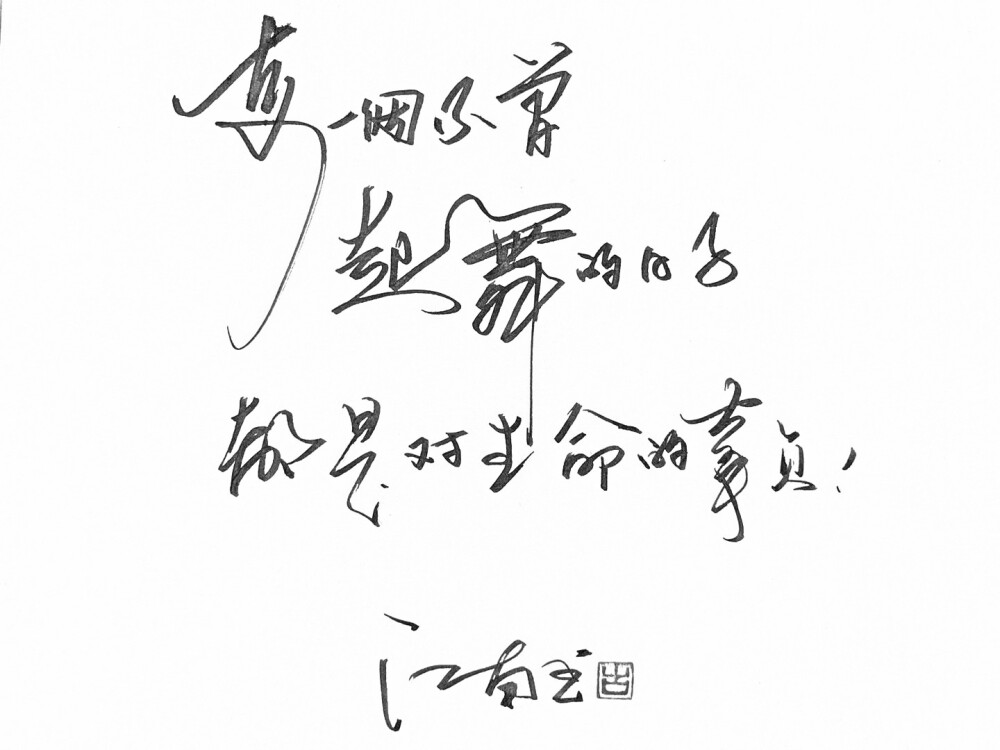 每一個不曾
起舞的日子
都是对生命的辜负！
江南